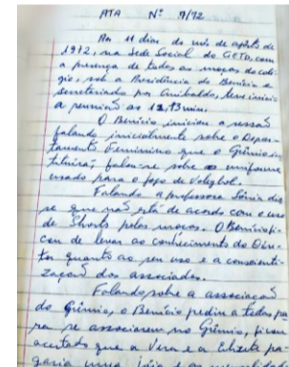 ATA Nº 9/72
Ao 11 dias do mês de agosto de
1972, na Sede Social do GETD, com
a presença de todas as moças do colé-
gio, sob a Presidência do Benício e
secretariado por Anibaldo, teve início
a reunião as 12,13 min.
O Benício iniciou a sessão
falando inicialmente sobre o Depar-
tamento Feminino que o Grêmio ins-
tituirá, falou-se sobre o uniforme
usado para o jogo de Voleybol.
Falando a professora Sônia dis-
se que não está de acordo com o uso
de Shorts pelas moças. O Benício fi-
cou de levar ao conhecimento do Dire-
tor quanto ao seu uso e a conscienti-
zação dos associados.
Falando sobre a associação
do Grêmio, o Benício pediu a todas pa-
ra se associarem no Grêmio, ficou
acertado que a Vera e a Elizete pa-
garia uma joia e as mensalidad